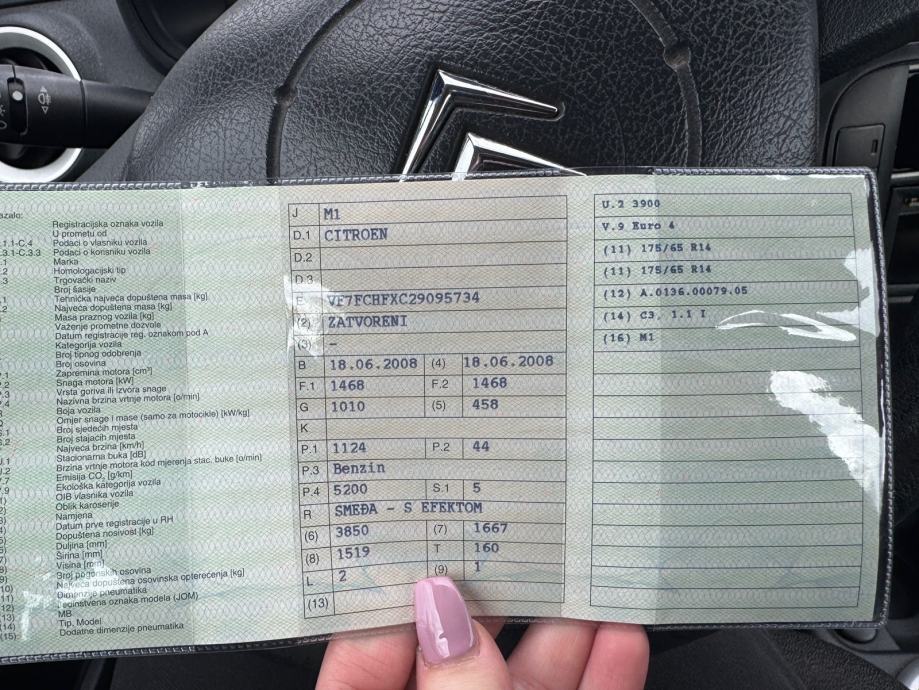 Registracijska oznaka vozila
U prometu od
C.4 Podaci o vlasniku vozila
C.3.3 Podaci o korisniku vozila
Marka
Homologacijski tip
Trgovački naziv
Broj šasije
Tehnička najveća dopuštena masa [kg]
Najveća dopuštena masa [kg]
Masa praznog vozila [kg]
Važenje prometne dozvole
Datum registracije reg. oznakom pod A
Kategorija vozila
Broj tipnog odobrenja
Broj osovina
Zapremina motora [cm³]
Snaga motora [kW]
Vrsta goriva ili izvora snage
Nazivna brzina vrtnje motora [o/min]
Boja vozila
Omjer snage i mase (samo za motocikle) [kW/kg]
Broj sjedećih mjesta
Broj stajaćih mjesta
Najveća brzina [km/h]
Stacionarna buka [dB]
Brzina vrtnje motora kod mjerenja stac. buke [o/min]
Emisija CO₂ [g/km]
Ekološka kategorija vozila
OIB vlasnika vozila
Oblik karoserije
Namjena
Datum prve registracije u RH
Dopuštena nosivost [kg]
Duljina [mm]
Širina [mm]
Visina [mm]
Broj pogonskih osovina
Najveća dopuštena osovinska opterećenja [kg]
Dimenzije pneumatika
Jedinstvena oznaka modela (JOM)
MB
Tip, Model
(15) Dodatne dimenzije pneumatika
J M1
D.1 CITROEN
D.2
D.3
E VF7FCHFXC29095734
(2) ZATVORENI
(3) –
B 18.06.2008 (4) 18.06.2008
F.1 1468 F.2 1468
G 1010 (5) 458
K
P.1 1124 P.2 44
P.3 Benzin
P.4 5200 S.1 5
R SMEĐA - S EFEKTOM
(6) 3850 (7) 1667
(8) 1519 T 160
L 2 (9) 1
(13)
U.2 3900
V.9 Euro 4
(11) 175/65 R14
(11) 175/65 R14
(12) A.0136.00079.05
(14) C3. 1.1 I
(16) M1